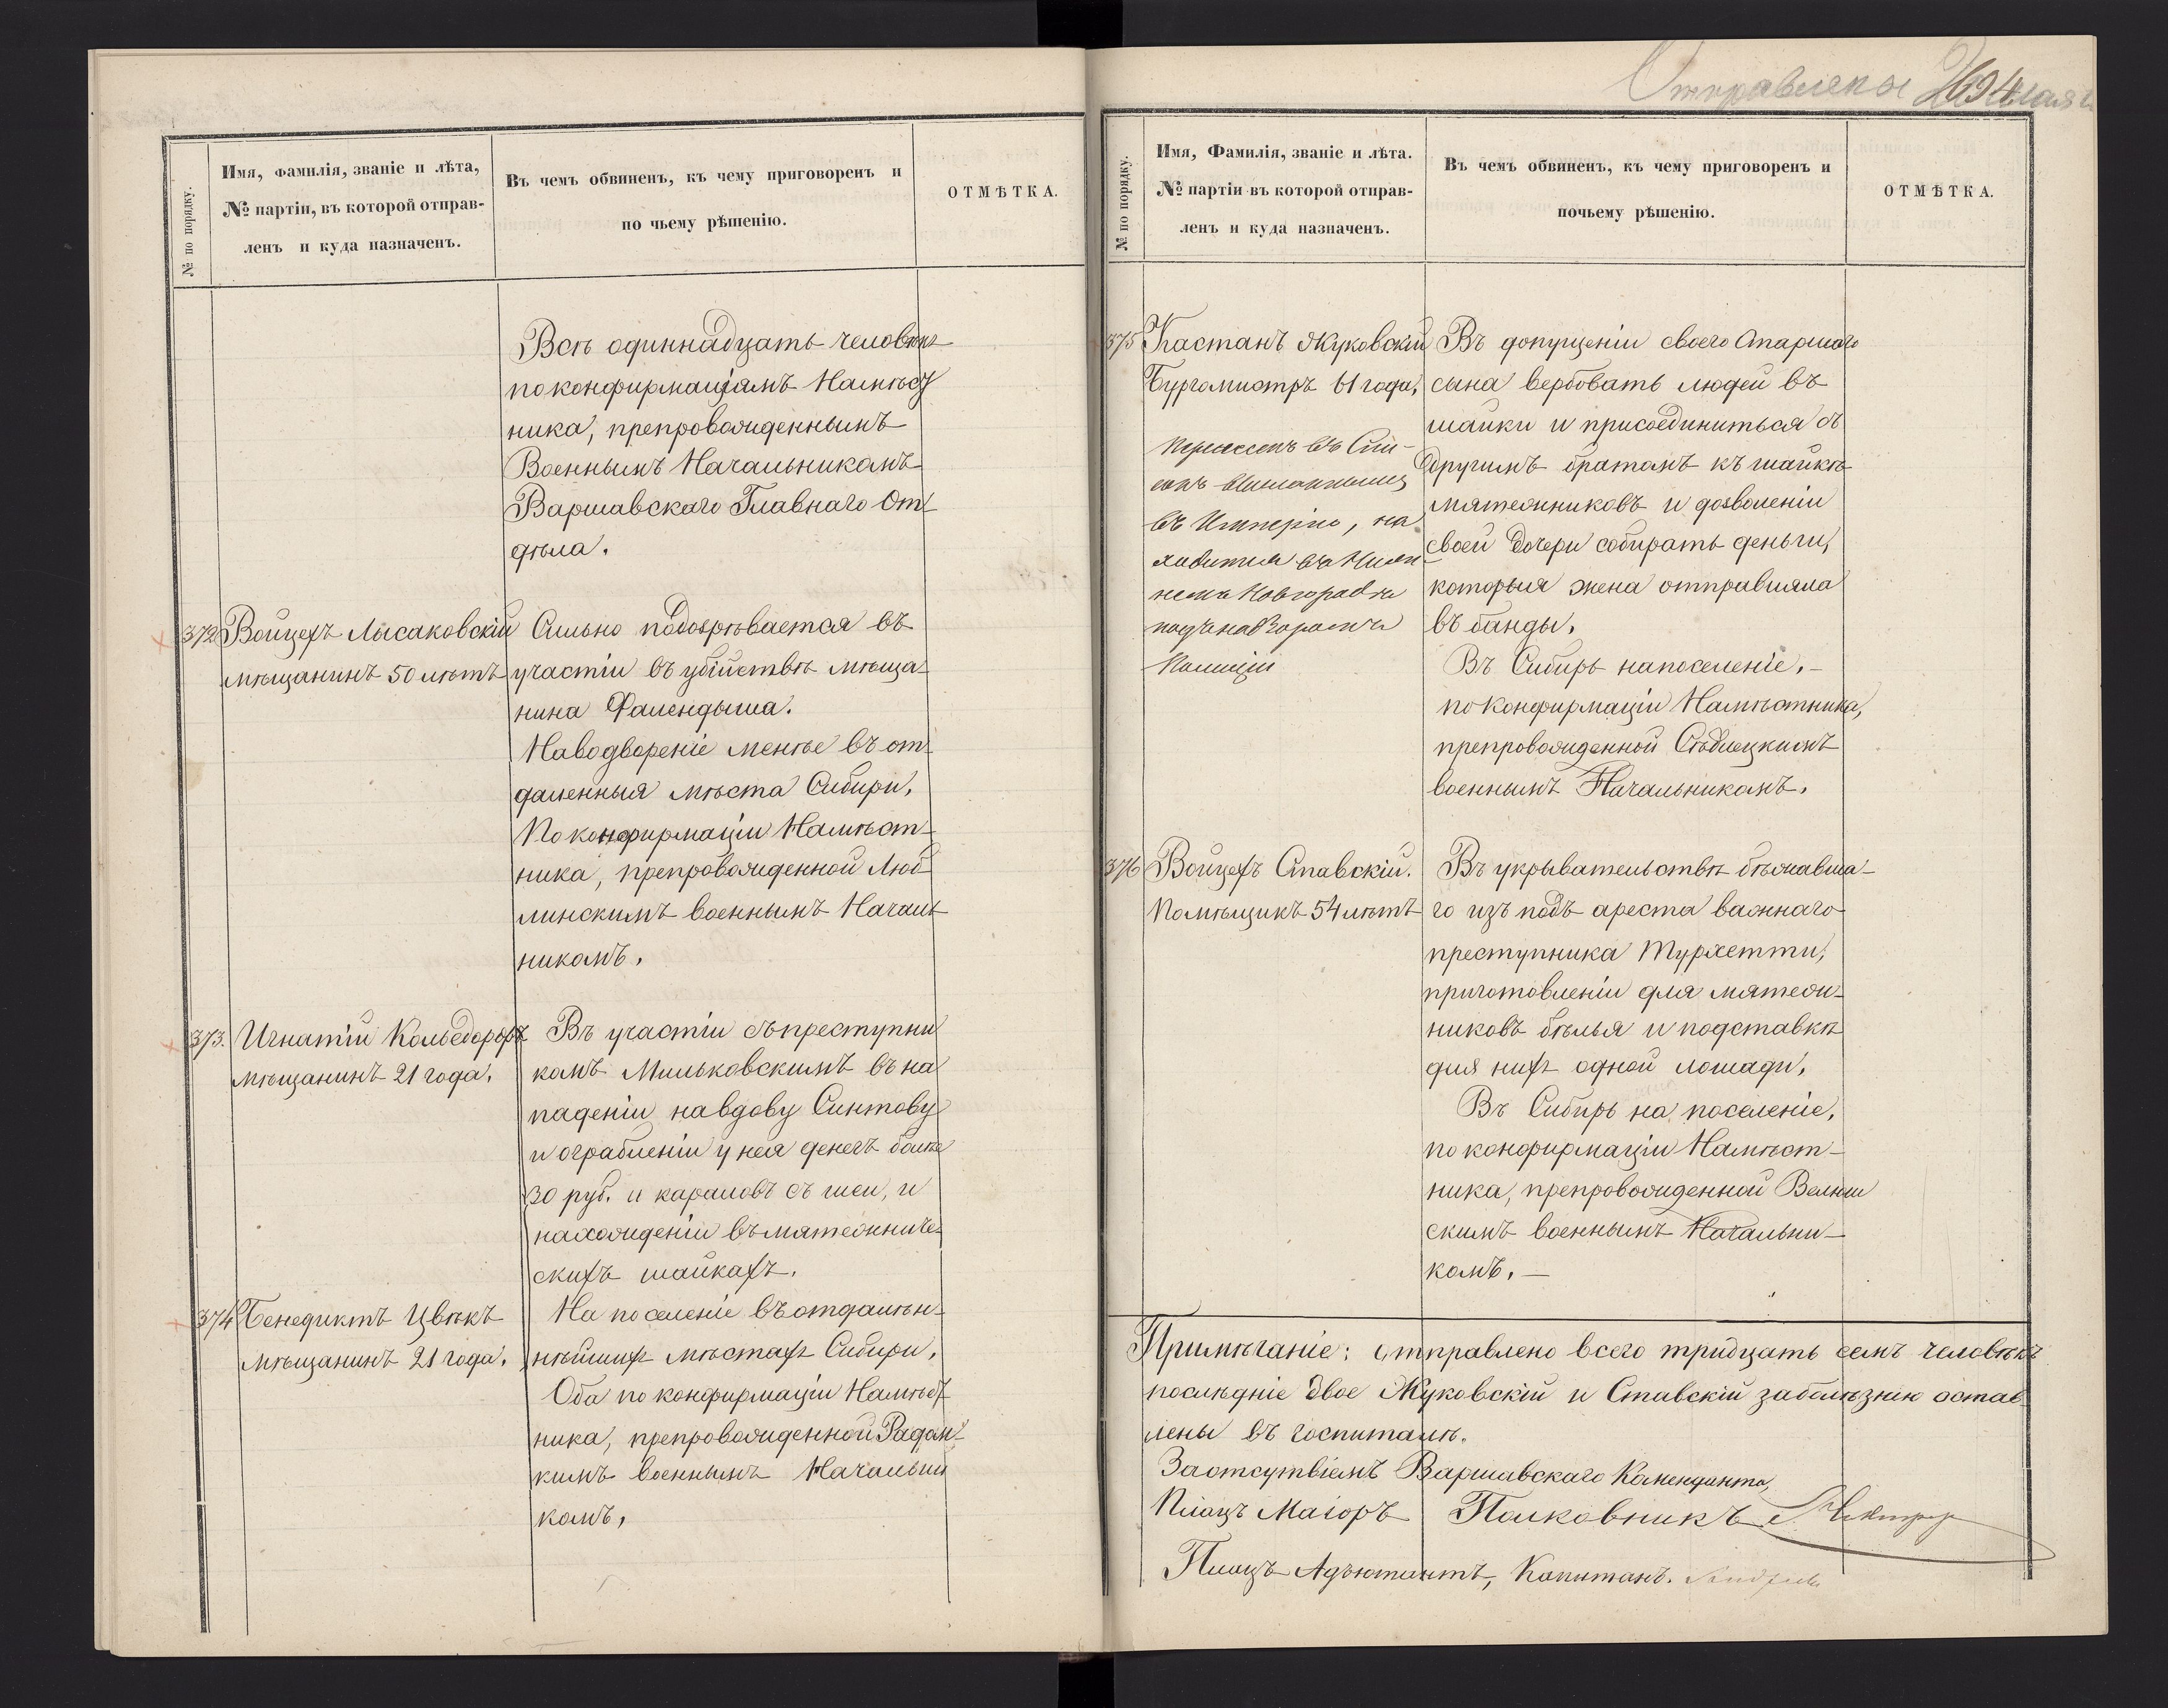 № по порядку.
Имя, Фамилія, званіе и лѣта,
№ партіи, въ которой отправ-
ленъ и куда назначенъ.
Въ чемъ обвиненъ, къ чему приговоренъ и
по чьему рѣшенію.
ОТМѢТКА.
Всѣ одиннадцать человѣкъ
по конфирмаціямъ Намѣст
ника, препровожденнымъ
Военнымъ Начальникомъ
Варшавскаго Главнаго От-
дѣла.
372 Войцехъ Лысаковскій
мѣщанинъ 50 лѣтъ
Сильно подозрѣвается въ
участіи въ убійствѣ мѣща-
нина Фалендыша.
На водвореніе менѣе въ от-
даленныя мѣста Сибири,
По конфирмаціи Намѣст-
ника, препровожденной Люб-
линскимъ военнымъ Началь
никомъ.
373. Игнатій Кольедорфъ
мѣщанинъ 21 года.
Въ участіи съ преступни
комъ Мильковскимъ въ на
паденіи на вдову Синтову
и ограбленіи у нея денегъ болѣе
30 руб. и караловъ съ шеи, и
нахожденіи въ мятежниче-
скихъ шайкахъ.
374 Бенедиктъ Цвѣкъ
мѣщанинъ 21 года.
На поселеніе въ отдален-
нѣйшихъ мѣстахъ Сибири,
Оба по конфирмаціи Намѣст
ника, препровожденной Радом-
кимъ военнымъ Начальни
комъ,
Отправлена 26 мая
694
№ по порядку.
Имя, Фамилія, званіе и лѣта.
№ партіи въ которой отправ-
ленъ и куда назначенъ.
Въ чемъ обвиненъ, къ чему приговоренъ и
почьему рѣшенію.
ОТМѢТКА.
375 Кастанъ Жуковскій
Бургомистръ 61 года,
въ Спи-
сокъ
въ Имперію, на
ходится въ Ниж
немъ Новгородѣ
подъ надзоромъ
Полиціи
Въ допущеніи своего старшаго
сына вербовать людей въ
шайки и присоединиться съ
другимъ братомъ къ шайкѣ
мятежниковъ и дозволеніи
своей дочери собирать деньги,
которыя жена отправляла
въ банды,
Въ Сибирь на поселеніе, -
по конфирмаціи Намѣстника,
препровожденной Сѣдлецкимъ
военнымъ Начальникомъ.
376 Войцехъ Ставскій.
Помѣщикъ 54 лѣтъ
Въ укрывательствѣ бѣжавша-
го изъ подъ ареста важнаго
преступника Турхетти,
приготовленіи для мятеж-
никовъ бѣлья и подставкѣ
для нихъ одной лошади,
Въ Сибирь на поселеніе,
по конфирмаціи Намѣст-
ника, препровожденной Велюн
скимъ военнымъ Начальни-
комъ. -
Примѣчаніе: отправлено всего тридцать семь человѣкъ
послѣдніе двое Жуковскій и Ставскій за болѣзнію остав
лены въ госпиталѣ.
За отсутвіемъ Варшавскаго Коменданта,
Плацъ Маіоръ Полковникъ
Плацъ Адъютантъ, Капитанъ.